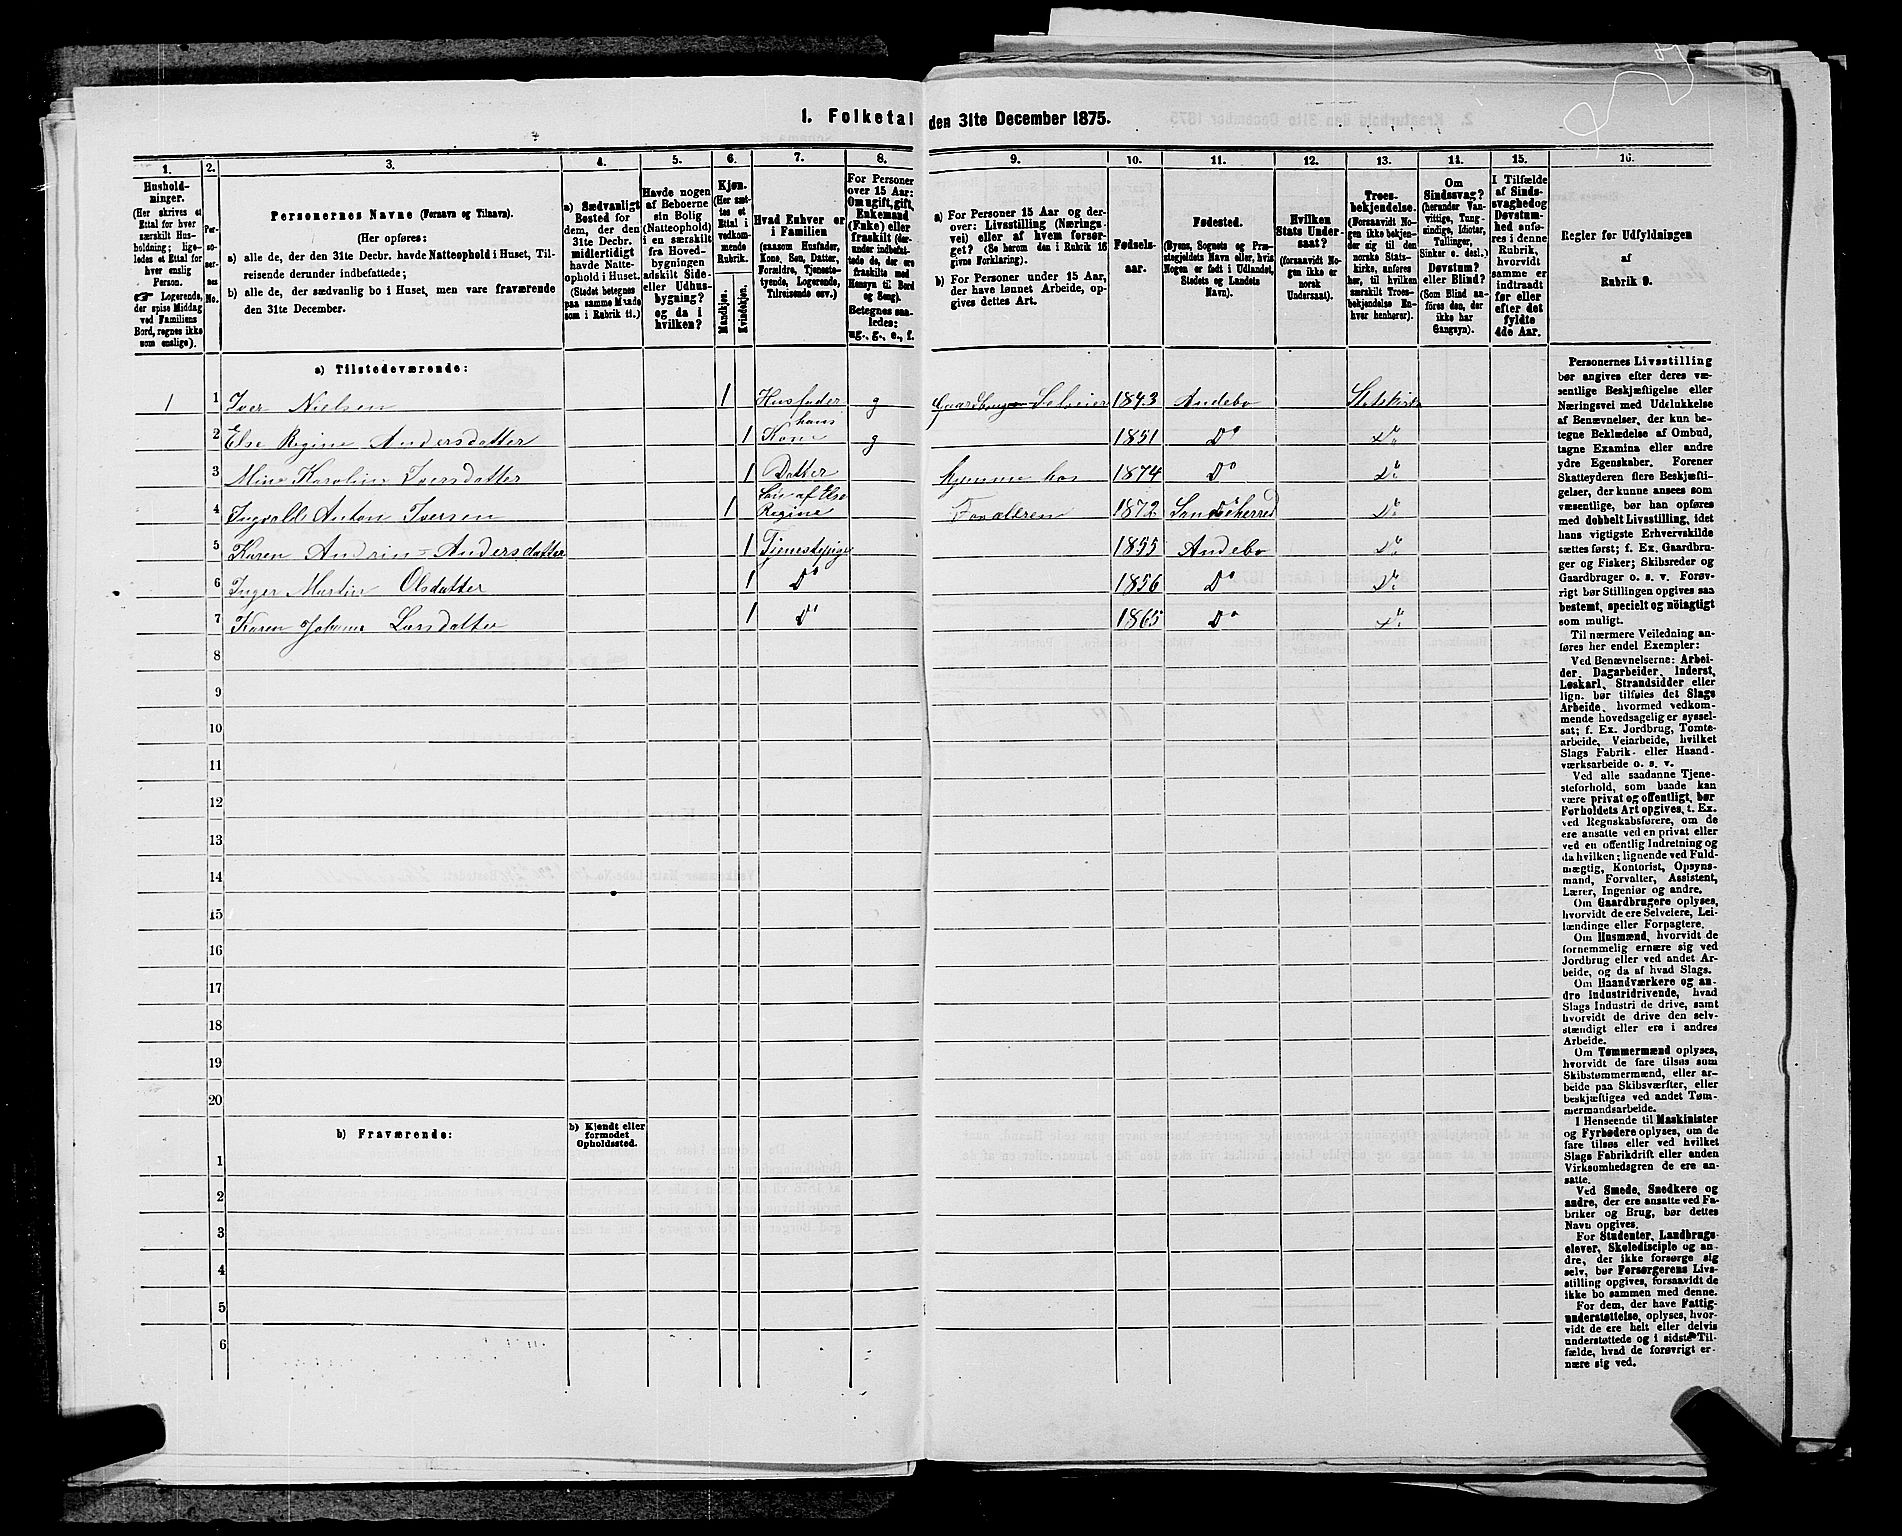 1. Folketal den 31te December 1875.
1. 2. 3. 4. 5. 6. 7. 8. 9. 10. 11. 12. 13. 14. 15. 16.
Hushold-
ninger.
(Her skrives et
Ettal for hver
særskilt Hus-
holdning; lige-
ledes et Ettal for
hver enslig
Person.
☞ Logerende,
der spise Middag
ved Familiens
Bord, regnes ikke
som enslige).
Per-
so-
ner-
nes
No.
Personernes Navne (Fornavn og Tilnavn).
(Her opføres:
a) alle de, der den 31te Decbr. havde Natteophold i Huset, Til-
reisende derunder indbefattede;
b) alle de, der sædvanlig bo i Huset, men vare fraværende
den 31te December.
a) Sædvanligt
Bosted for
dem, der den
31te Decbr.
midlertidigt
havde Natte-
ophold i Huset.
(Stedet betegnes
paa samme Maade
som i Rubrik 11.)
Havde nogen
af Beboerne
sin Bolig
(Natteophold)
i en særskilt
fra Hoved-
bygningen
adskilt Side-
eller Udhus-
bygning?
og da i
hvilken?
Kjøn.
(Her sæt-
tes et
Ettal i
vedkom-
mende
Rubrik.
Mandkjøn.
Kvindekjøn.
Hvad Enhver er
i Familien
(saasom Husfader,
Kone, Søn, Datter,
Forældre, Tjeneste-
tyende, Logerende,
Tilreisende osv.)
For Personer
over 15 Aar:
Om ugift, gift,
Enkemand
(Enke) eller
fraskilt (der-
under indbefat-
tede de, der ere
fraskilte med
Hensyn til Bord
og Seng).
Betegnes saa-
ledes:
ug., g., e., f.
a) For Personer 15 Aar og der-
over: Livsstilling (Nærings-
vei) eller af hvem forsør-
get? (Se herom den i Rubrik 16
givne Forklaring).
b) For Personer under 15 Aar,
der have lønnet Arbeide, op-
gives dettes Art.
Fødsels-
aar.
Fødested.
(Byens, Sognets og Præ-
stegjeldets Navn eller, hvis
Nogen er født i Udlandet,
Stedets og Landets
Navn).
Hvilken
Stats Under-
saat?
(forsaavidt No-
gen ikke er
norsk
Undersaat).
Troes-
bekjendelse.
(Forsaavidt No-
gen ikke bekjen-
der sig til den
norske Stats-
kirke, anføres
her, til hvilken
særskilt Troes-
bekjendelse En-
hver henhører).
Om
Sindssvag?
(herunder Van-
vittige, Tung-
sindige, Idioter,
Tullinger,
Sinker o. desl.)
Døvstum?
eller Blind?
(Som Blind an-
føres den, der
ikke har
Gangsyn).
I Tilfælde
af Sinds-
svaghed og
Døvstum-
hed anfø-
res i denne
Rubrik,
hvorvidt
samme er
indtraadt
før eller
efter det
fyldte
4de Aar.
Regler for Udfyldningen
af
Rubrik 9.
a) Tilstedeværende:
1 1 Iver Nielsen 1 Husfader g Gaardbruger Selveier 1843 Andebo Statskirke
2 Else Regine Andersdatter 1 hans Kone g 1851 Do Do
3 Mine Karolin Iversdatter 1 Datter hjemme hos 1874 Do Do
4 Ingvald Anton Iversen 1 Søn af Else Regine Forældren 1872 Sandeherred Do
5 Karen Andrin Andersdatter 1 Tjenestepige 1855 Andebo Do
6 Inger Martin Olsdatter 1 Do 1856 Do Do
7 Karen Johanne Larsdatter 1 Do 1865 Do Do
8
9
10
11
12
13
14
15
16
17
18
19
20
b) Fraværende:
b) Kjendt eller
formodet
Opholdssted.
1
2
3
4
5
6
Personernes Livsstilling
bør angives efter deres væ-
sentlige Beskjæftigelse eller
Næringsvei med Udelukkelse
af Benævnelser, der kun be-
tegne Beklædelse af Ombud,
tagne Examina eller andre
ydre Egenskaber. Forener
Skatteyderen flere Beskjæfti-
gelser, der kunne ansees som
væsentlige, bør han opføres
med dobbelt Livsstilling, idet
hans vigtigste Erhvervskilde
sættes først; f. Ex. Gaardbru-
ger og Fisker; Skibsreder og
Gaardbruger o. s. v. Forøv-
rigt bør Stillingen opgives saa
bestemt, specielt og nöiagtigt
som muligt.
Til nærmere Veiledning an-
føres her endel Exempler:
Ved Benævnelserne: Arbei-
der, Dagarbeider, Inderst,
Løskarl, Strandsidder eller
lign. bør tilføies det Slags
Arbeide, hvormed vedkom-
mende hovedsagelig er syssel-
sat; f. Ex. Jordbrug, Tomte-
arbeide, Veiarbeide, hvilket
Slags Fabrik- eller Haand-
værksarbeide o. s. v.
Ved alle saadanne Tjene-
steforhold, som baade kan
være privat og offentligt, bør
Forholdets Art opgives, t. Ex.
ved Regnskabsførere, om de
ere ansatte ved en privat eller
ved en offentlig Indretning og
da hvilken; lignende ved Fuld-
mægtig, Kontorist, Opsyns-
mand, Forvalter, Assistent,
Lærer, Ingeniør og andre.
Om Gaardbrugere oplyses,
hvorvidt de ere Selveiere, Lei-
lændinge eller Forpagtere.
Om Husmænd, hvorvidt de
fornemmelig ernære sig ved
Jordbrug eller ved andet Ar-
beide, og da af hvad Slags.
Om Haandværkere og an-
dre Industridrivende, hvad
Slags Industri de drive, samt
hvorvidt de drive den selv-
stændigt eller ere i andres
Arbeide.
Om Tømmermænd oplyses,
hvorvidt de fare tilsøs som
Skibstømmermænd, eller ar-
beide paa Skibsværfter, eller
beskjæftiges ved andet Tøm-
mermandsarbeide.
I Henseende til Maskinister
og Fyrbødere oplyses, om de
fare tilsøs eller ved hvilket
Slags Fabrikdrift eller anden
Virksomhedsgren de ere an-
satte.
Ved Smede, Snedkere og
andre, der ere ansatte ved Fa-
briker og Brug, bør dettes
Navn opgives.
For Studenter, Landbrugs-
elever, Skoledisciple og an-
dre, der ikke forsørge sig
selv, bør Forsørgerens Livs-
stilling opgives, forsaavidt de
ikke bo sammen med denne.
For dem, der have Fattig-
understøttelse, oplyses, hvor-
vidt de ere helt eller delvis
understøttede og i sidste Til-
fælde, hvad de forøvrigt er-
nære sig ved.